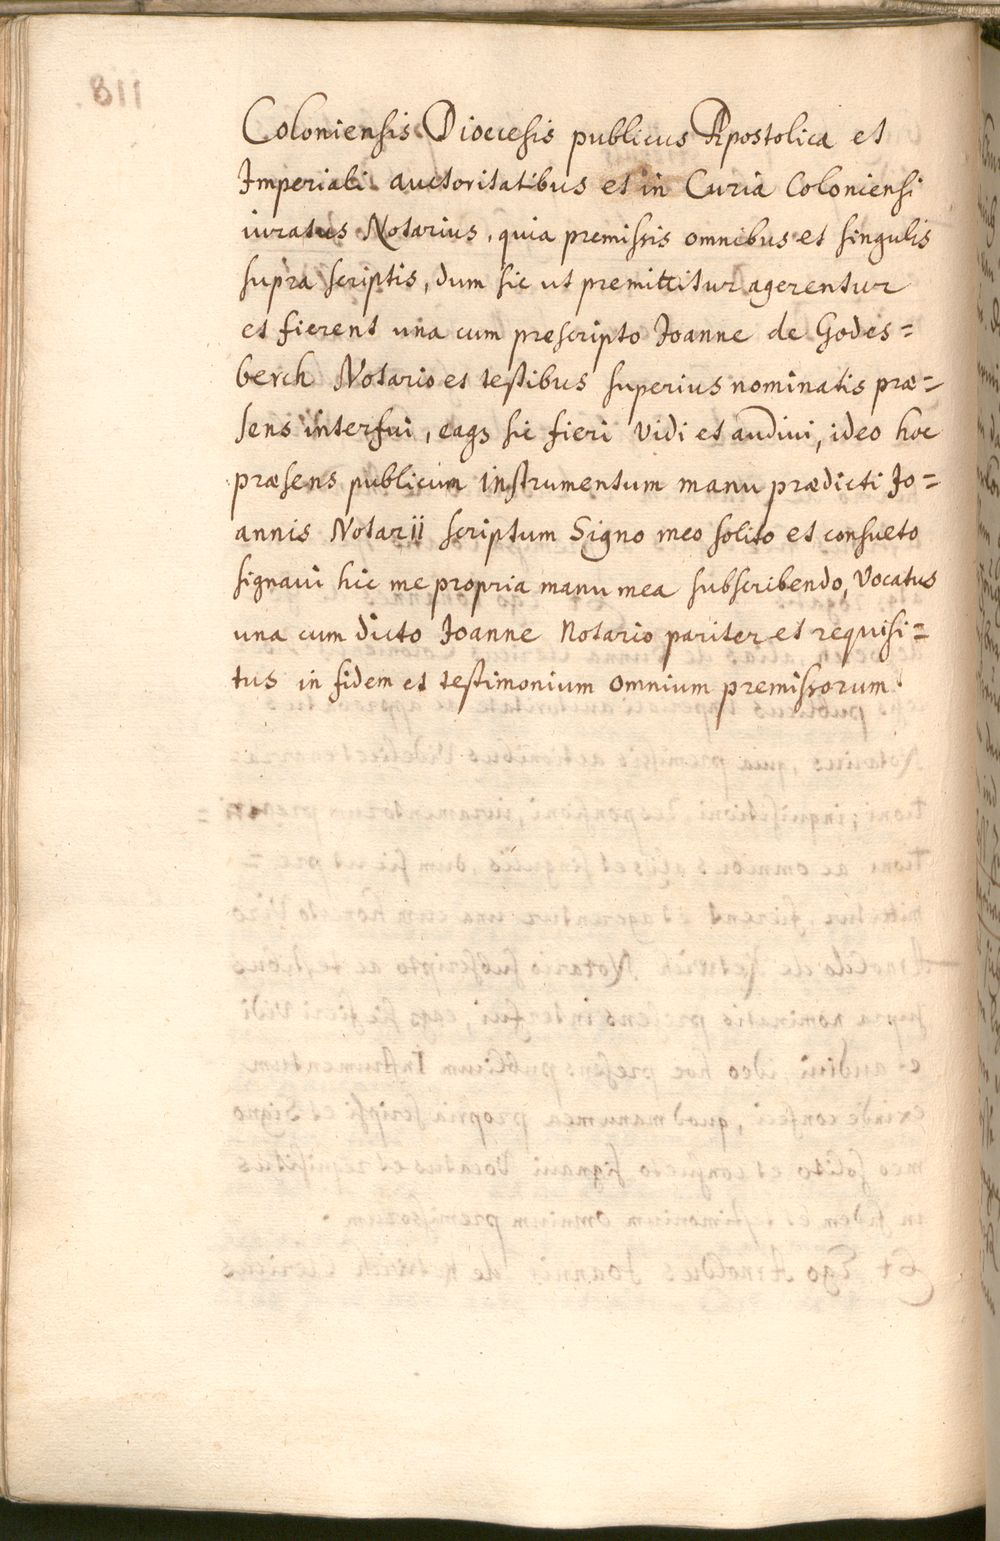 Coloniensis Dioecesis publicus Apostolica et
Imperiali auctoritatibus et in Curia Coloniensi
iuratus Notarius, quia premissis omnibus et singulis
supra scriptis, dum sic ut premittitur agerentur
et fierent una cum prescripto Joanne de Godes=
berch Notario et testibus superius nominatis præ=
sens interfui, eaqꝫ sic fieri vidi et audiui, ideo hoc
præsens publicum instrumentum manu prædicti Jo=
annis Notarij scriptum Signo meo solito et consueto
signaui hic me propria manu mea subscribendo, vocatus
una cum dicto Joanne Notario pariter et requisi=
tus in fidem et testimonium omnium premissorum.